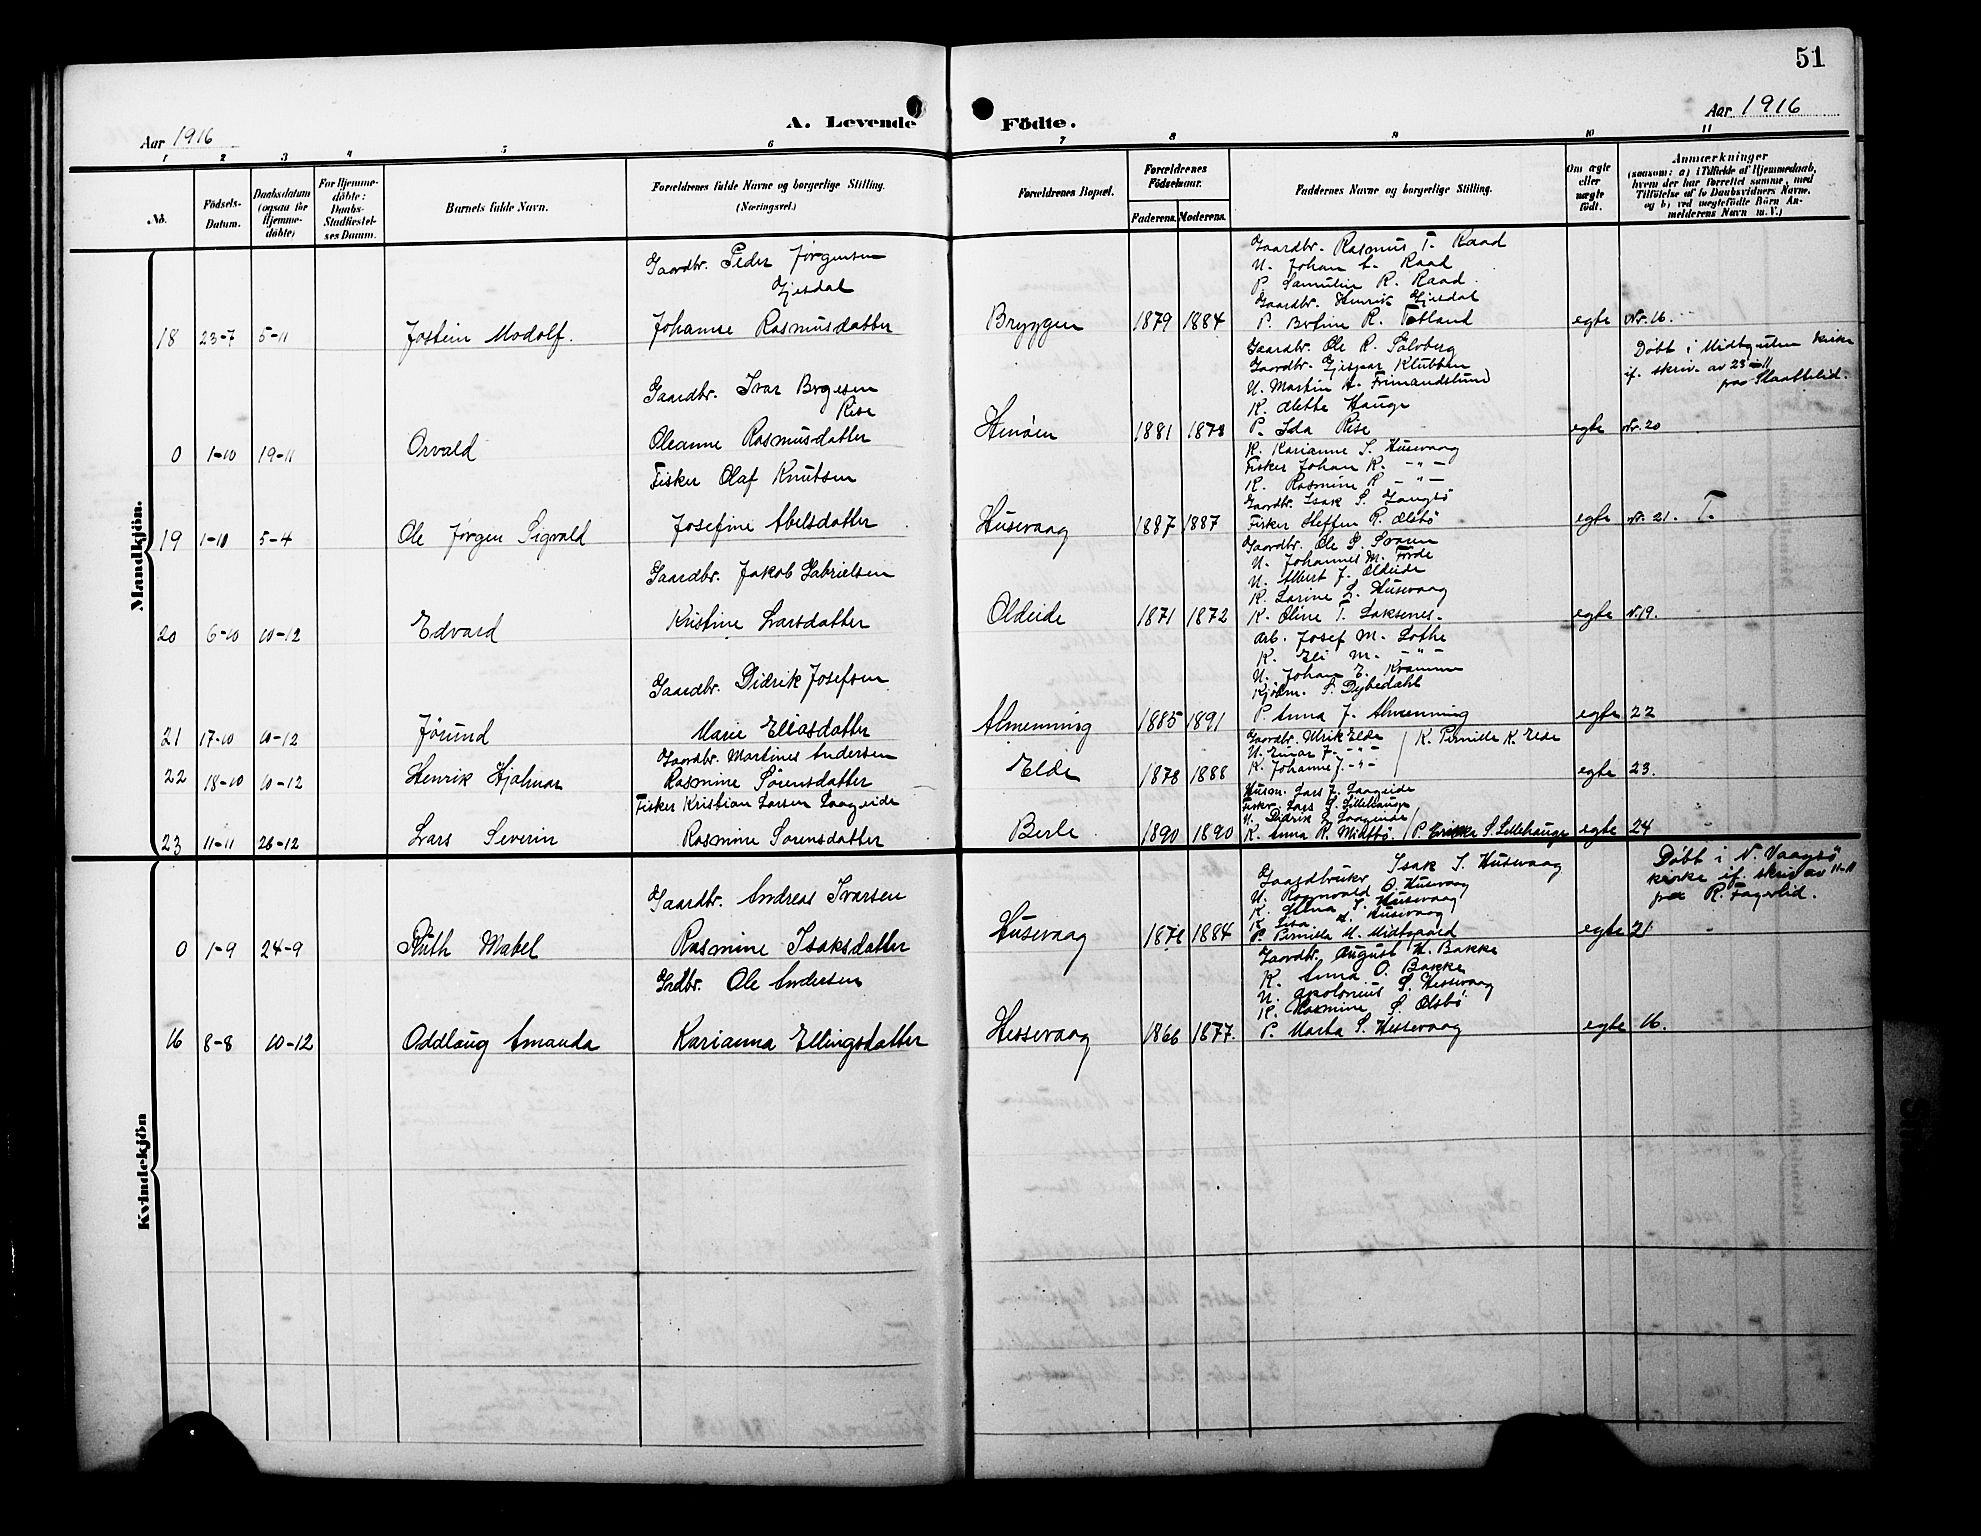 51
Aar 1916
A. Levende Födte.
Aar 1916
1 2 3 4 5 6 7 8 9 10 11
No.
Födsels-Datum.
Daabsdatum (ogsaa for Hjemmedöbte)
For Hjemmedöbte: Daabs-Stadfæstelses Datum.
Barnets fulde Navn.
Forældrenes fulde Navne og borgerlige Stilling. (Næringsvei.)
Forældrenes Bopæl.
Forældrenes Födselsaar.
Faderens. Moderens.
Faddernes Navne og borgerlige Stilling.
Om ægte eller uægte födt.
Anmærkninger
(saasom: a) i Tilfælde af Hjemmedaab, hvem der har forrettet samme, med Tilföielse af to Daabsvidners Navne, og b) ved uegtefödte Börn Anmelderens Navn m. V.)
Mandkjön.
18 23-7 5-11 Jostein Modolf.
Gaardbr. Peder Jørgensen
Gjesdal
Johanne Rasmusdatter
Bryggen 1879 1884
Gaardbr. Rasmus T. Raad
U. Johan Raad
P. Samuline R. Raad.
Gaardbr. Henrik Gjesdal
P. R. Totland
egte Nr. 16.
0 1-10 19-11 Orvald
Gaardbr. Ivar
Rise
Oleanne Rasmusdatter
1881
Gaardbr. Ole R. Sølvberg
Gaardbr. Klubben
U. Martin Frimandslund
K. Alette Hauge
P. Ida Rise
egte Nr. 20
Døbt i Midtgulen kirke
if. skriv. av 23
fra Staattelid.
19 1-10 5-4 Ole Jørgen Sigvald
Fisker Olaf Knutsen
Josefine Abelsdatter
Husevaag 1887 1887
K. Karianne S. Husevaag
Fisker Johan K. -"-
K. Rasmine R -"-
Gaardbr. Isak S. Langbø
Fisker Steffen R. Olsbø
egte Nr. 21. T.
20 6-10 10-12 Edvard
Gaardbr. Jakob Gabrielsen
Kristine Larsdatter
Oldeide 1871 1872
Gaardbr. Ole P.
U. Johannes M. Førde
U. Albert J. Oldeide
K. Larine L. Husevaag
K. Oline T. Laksenes.
egte N. 19.
21 17-10 10-12 Jørund
Gaardbr. Didrik Josefsen
Marie Eliasdatter
Almenning 1885 1891
Arb. Josef M. Lothe
K. Eli M. -"-
U. Johan E.
Kjøbm. S. Dybedahl
P. Anna J. Almenning
egte 22
22 18-10 10-12 Henrik Hjalmar
Gaardbr. Martines Andersen
Rasmine Sørensdatter
Elde 1878 1888
Gaardbr. Ulrik Elde
U. Einar J. -"-
K. Johanne J. -"-
K. Pernille K. Elde
egte 23.
23 11-11 26-12 Lars Severin
Fisker Kristian Larsen Laageide
Rasmine Sørensdatter
Berle 1890 1890
Husm. Lars J. Laageide
Fisker Lars S. Lillehauge
U. Didrik L. Laageide
K. Anna R. Midtbø. P. S. Lillehauge
egte 24
Kvindekjön
0 1-9 24-9 Ruth Mabel
Gaardbr. Andreas Ivarsen
Rasmine Isaksdatter
Husevaag 1884
Gaardbruker Isak S. Husevaag
U. Ragnvald O. Husevaag
K. S. Husevaag
K. Lisa Husevaag
P. Pernilla M. Midtgaard
egte 21
Døbt i N. Vaagsø
kirke if. skriv av 11-11
fra R. Fagerlid.
16 8-8 10-12 Oddlaug Amanda
Grdbr. Ole Andersen
Karianna Ellingsdatter
Hessevaag 1866 1877.
Gaardbr. August H. Bakke
K. Anna O. Bakke
U. Apolonius S. Hessevaag
K. Rasmine S. Olsbø
P. Marta S. Hessevaag
egte 16.